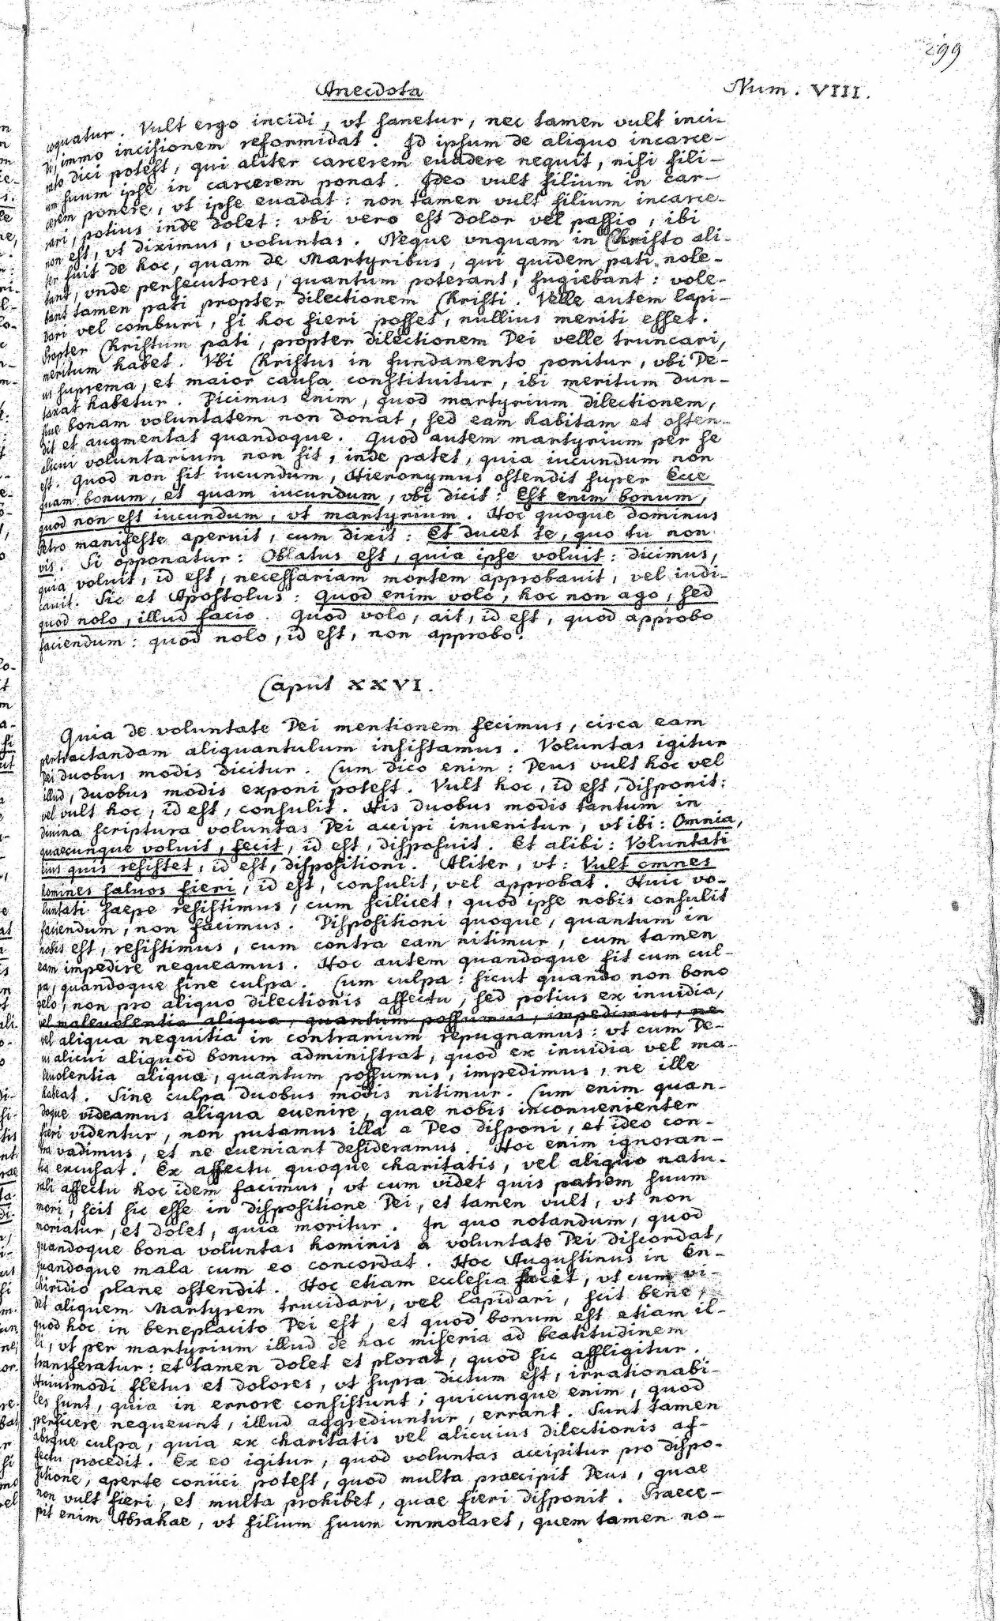 299
Anecdota Num. VIII.
oquatur. Vult ergo incidi, vt sanetur, nec tamen vult inci-
di, immo incisionem reformidat. Id ipsum de aliquo incarce-
rato dici potest, qui aliter carcerem euadere nequit, nisi fili-
um suum ipse in carcerem ponat. Ideo vult filium in car-
cerem ponere, vt ipse euadat: non tamen vult filium incarce-
rari, potius inde dolet: vbi vero est dolor vel passio, ibi
non est, vt diximus, voluntas. Neque vnquam in Christo ali-
ter fuit de hoc, quam de Martyribus, qui quidem pati nole-
bant, vnde persecutores, quantum poterant, fugiebant: vole-
bant tamen pati propter dilectionem Christi. Velle autem lapi-
dari vel comburi, si hoc fieri posset, nullius meriti esset.
Propter Christum pati, propter dilectionem Dei velle truncari,
meritum habet. Vbi Christus in fundamento ponitur, vbi De-
us suprema, et maior causa constituitur, ibi meritum dun-
taxat habetur. Dicimus enim, quod martyrium dilectionem,
siue bonam voluntatem non donat, sed eam habitam et osten-
dit et augmentat quandoque. Quod autem martyrium per se
alicui voluntarium non sit, inde patet, quia iucundum non
est. Quod non sit iucundum, Hieronymus ostendit super Ecce
quam bonum, et quam iucundum, vbi dicit: Est enim bonum,
quod non est iucundum, vt martyrium. Hoc quoque dominus
Petro manifeste aperuit, cum dixit: Et ducet te, quo tu non
vis. Si opponatur: Oblatus est, quia ipse voluit: dicimus,
quia voluit, id est, necessariam mortem approbauit, vel indi-
cauit. Sic et Apostolus: Quod enim volo, hoc non ago, sed
quod nolo, illud facio. Quod volo, ait, id est, quod approbo
faciendum: quod nolo, id est, non approbo.
Caput XXVI.
Quia de voluntate Dei mentionem fecimus, circa eam
pertractandam aliquantulum insistamus. Voluntas igitur
Dei duobus modis dicitur. Cum dico enim: Deus vult hoc vel
illud, duobus modis exponi potest. Vult hoc, id est, disponit:
vel vult hoc, id est, consulit. His duobus modis tantum in
diuina scriptura voluntas Dei accipi inuenitur, vt ibi: Omnia,
quaecunque voluit, fecit, id est, disposuit. Et alibi: Voluntati
eius quis resistet, id est, dispositioni. Aliter, vt: Vult omnes
homines saluos fieri, id est, consulit, vel approbat. Huic vo-
luntati saepe resistimus, cum scilicet, quod ipse nobis consulit
faciendum, non facimus. Dispositioni quoque, quantum in
nobis est, resistimus, cum contra eam nitimur, cum tamen
eam impedire nequeamus. Hoc autem quandoque fit cum cul-
pa, quandoque sine culpa. Cum culpa: sicut quando non bono
zelo, non pro aliquo dilectionis affectu, sed potius ex inuidia,
vel maleuolentia aliqua, quantum possumus, impedimus, ne
vel aliqua nequitia in contrarium repugnamus: vt cum De-
us alicui aliquod bonum administrat, quod ex inuidia vel ma-
leuolentia aliqua, quantum possumus, impedimus, ne ille
habeat. Sine culpa duobus modis nitimur. Cum enim quan-
doque videamus aliqua euenire, quae nobis inconuenienter
fieri videntur, non putamus illa a Deo disponi, et ideo con-
tra vadimus, et ne eueniant desideramus. Hoc enim ignoran-
tia excusat. Ex affectu quoque charitatis, vel aliquo natu-
rali affectu hoc idem facimus, vt cum videt quis patrem suum
mori, scit sic esse in dispositione Dei, et tamen vult, vt non
moriatur, et dolet, quia moritur. In quo notandum, quod
quandoque bona voluntas hominis a voluntate Dei discordat,
quandoque mala cum eo concordat. Hoc Augustinus in En-
chiridio plane ostendit. Hoc etiam ecclesia facit, vt cum vi-
det aliquem Martyrem trucidari, vel lapidari, scit bene,
quod hoc in beneplacito Dei est, et quod bonum est etiam il-
li, vt per martyrium illud de hac miseria ad beatitudinem
transferatur: et tamen dolet et plorat, quod sic affligitur.
Huiusmodi fletus et dolores, vt supra dictum est, irrationabi-
les sunt, quia in errore consistunt; quicunque enim, quod
perficere nequeunt, illud aggrediuntur, errant. Sunt tamen
absque culpa, quia ex charitatis vel alicuius dilectionis af-
fectu procedit. Ex eo igitur, quod voluntas accipitur pro dispo-
sitione, aperte coniici potest, quod multa praecipit Deus, quae
non vult fieri, et multa prohibet, quae fieri disponit. Praece-
pit enim Abrahae, vt filium suum immolaret, quem tamen no-